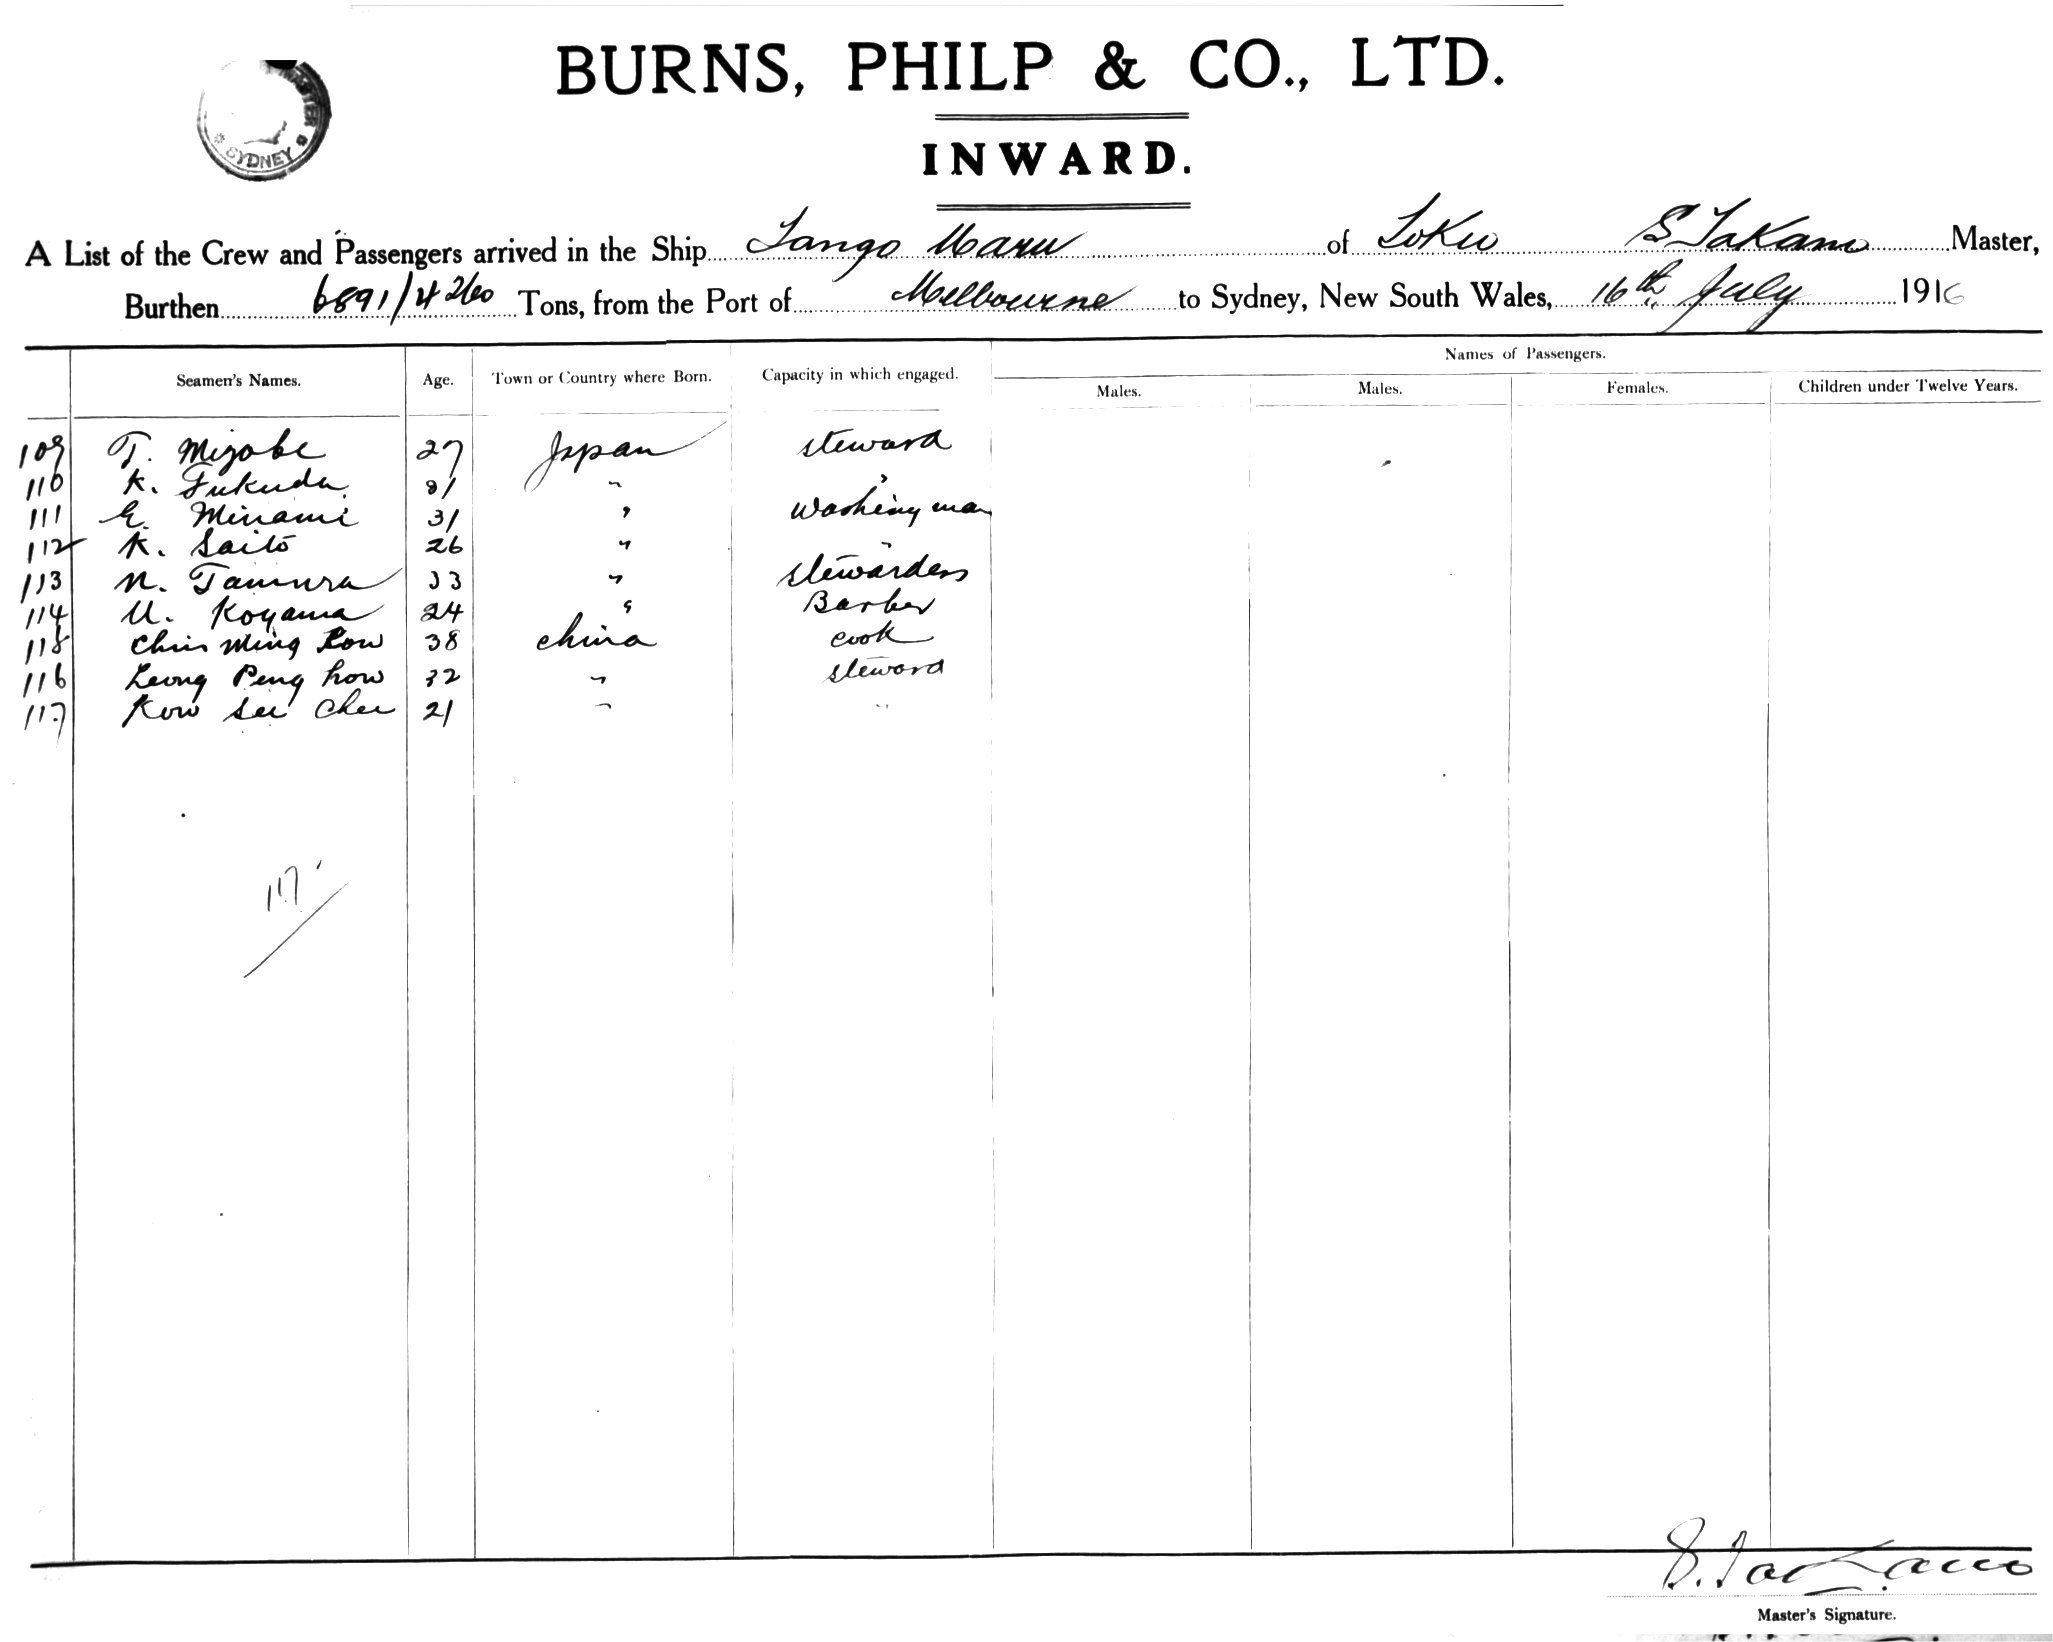 BURNS, PHILP & CO., LTD.
INWARD.
SYDNEY
A List of the Crew and Passengers arrived in the Ship Tango Maru of Tokio S Takano Master,
Burthen 6891/4260 Tons, from the Port of Melbourne to Sydney, New South Wales, 16th July 1916
Names of Passengers.
Seamen's Names. Age. Town or Country where Born. Capacity in which engaged. Males. Males. Females. Children under Twelve Years.
109 T. Mizobe 27 Japan steward
110 K. Fukuda 31 " "
111 E. Minami 31 " Washing man
112 K. Saito 26 " "
113 N. Tamura 33 " stewardess
114 U. Koyama 24 " Barber
115 Ming Kow 38 China cook
116 Leong Peng how 32 " steward
117 Kow See Chee 21 " "
117
S. Takano
Master's Signature.